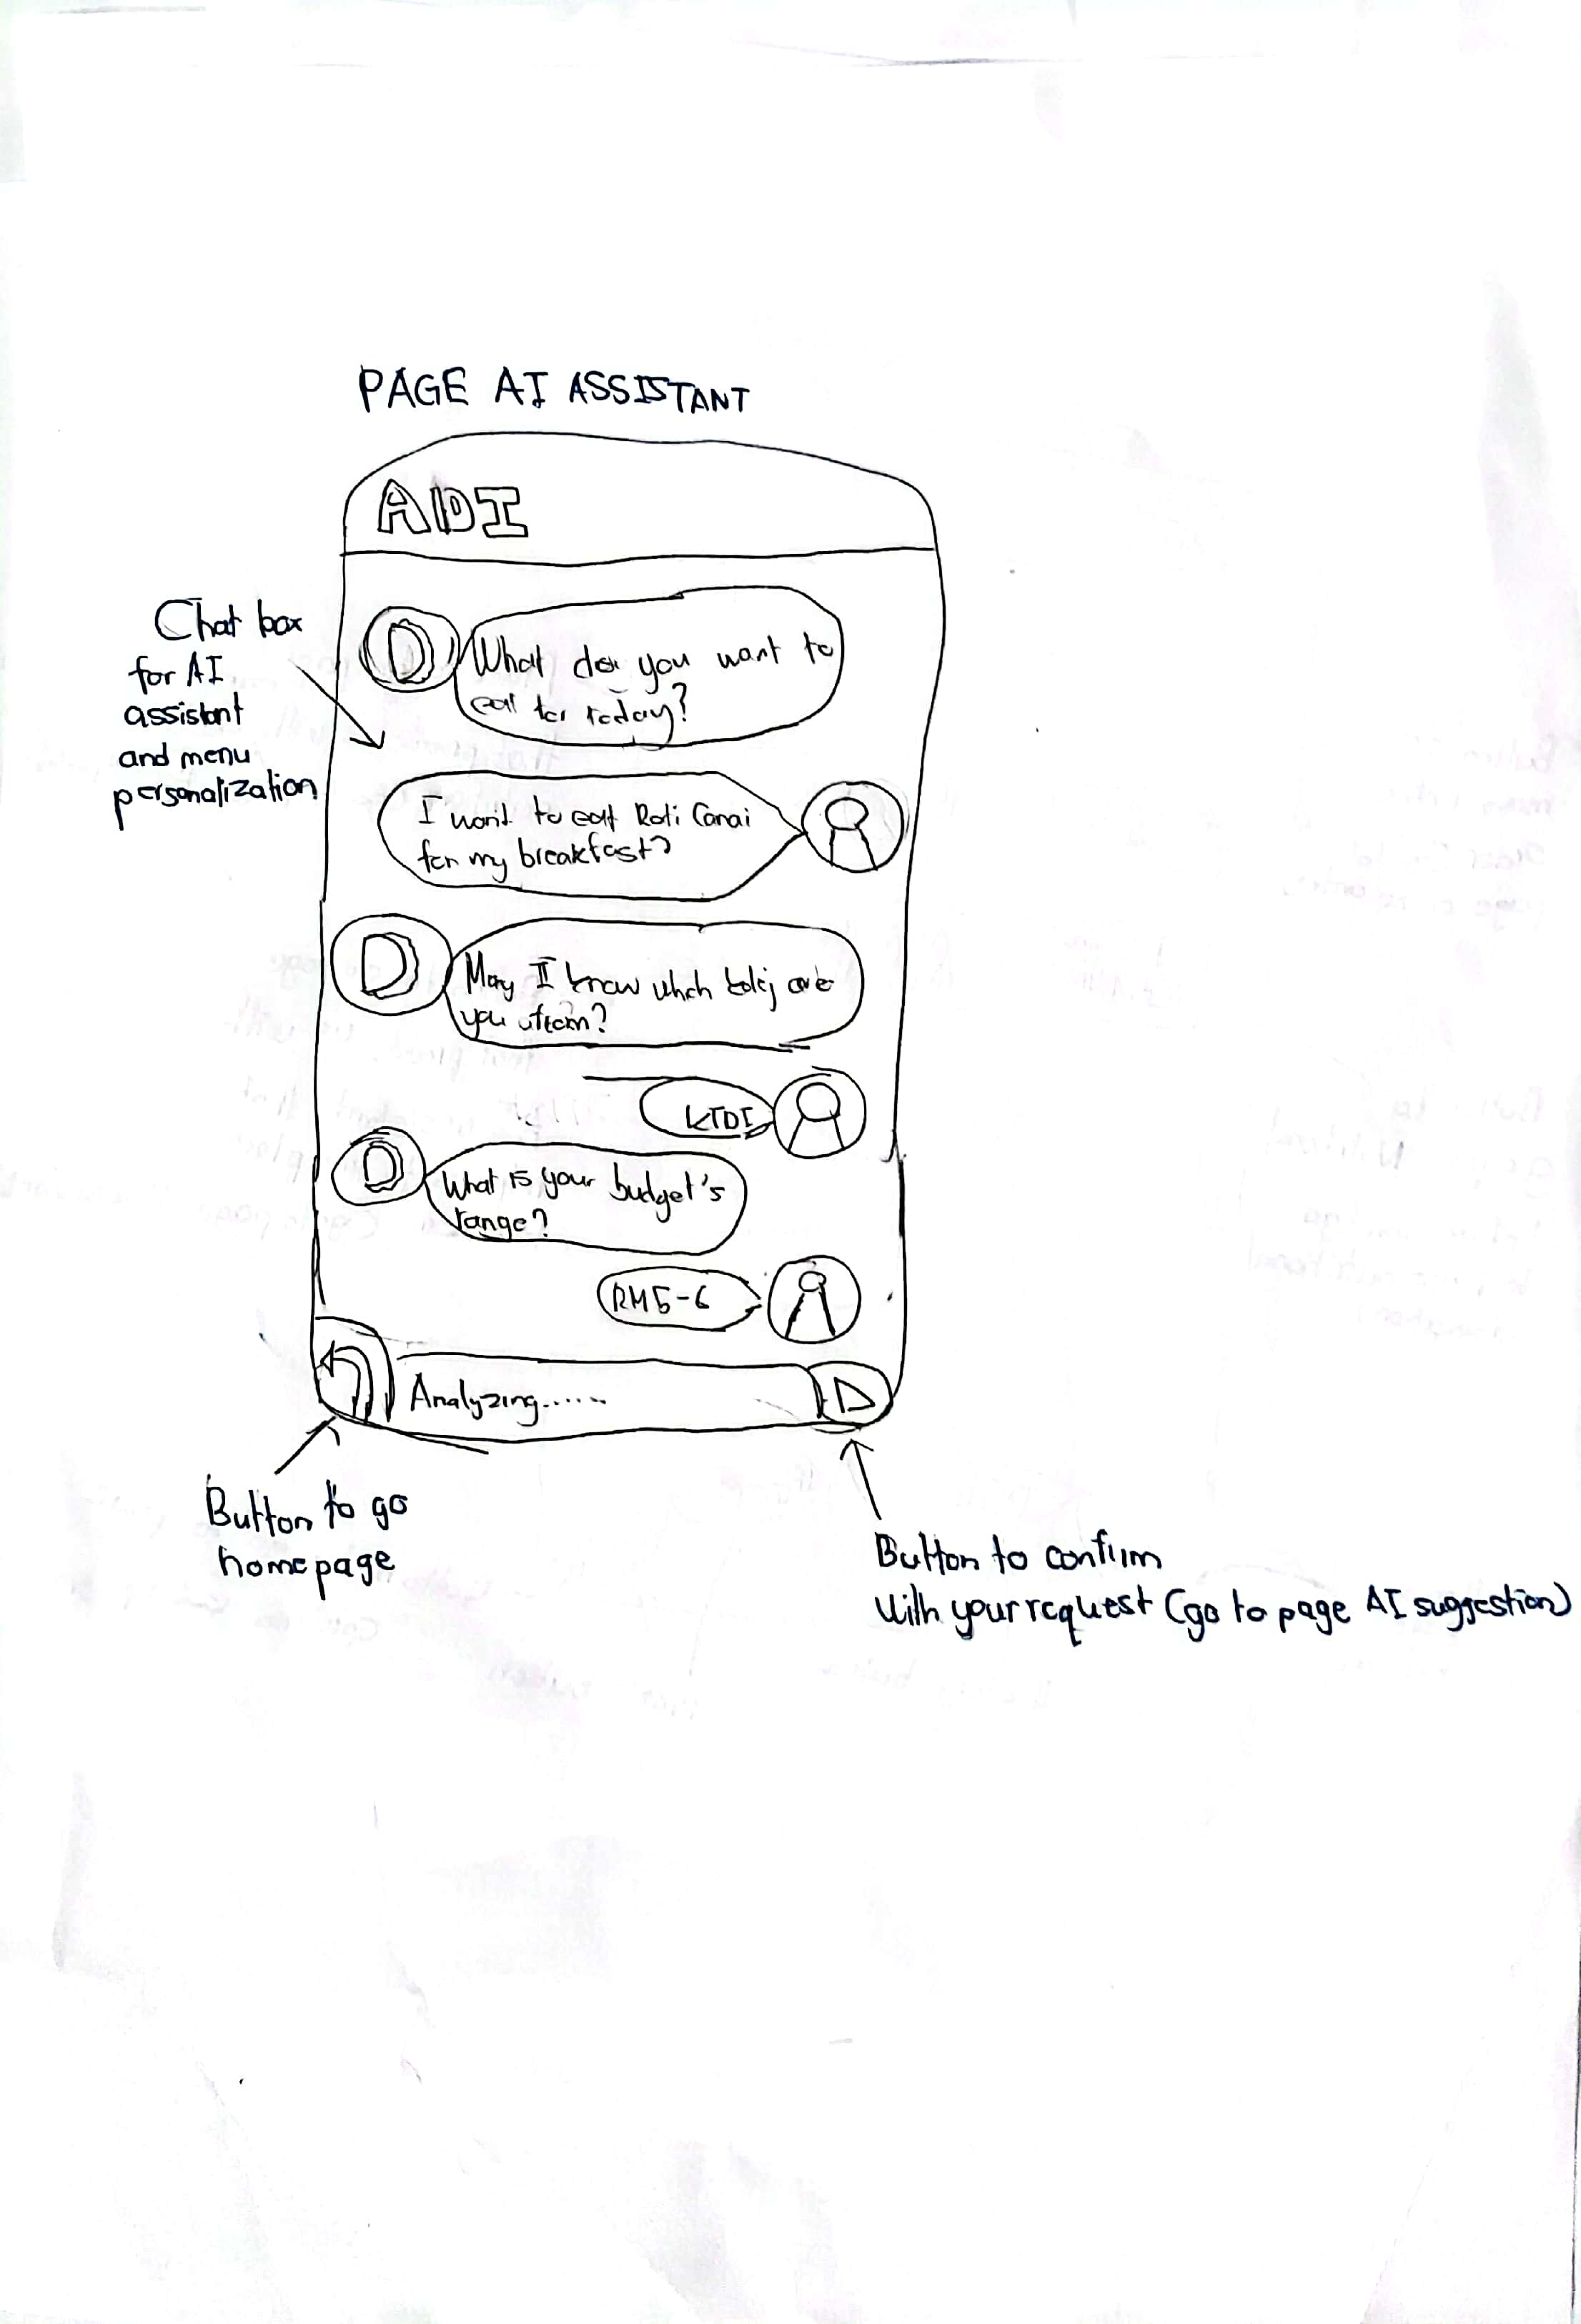 PAGE AI ASSISTANT
ADI
Chat box
for AI
assistant
and menu
personalization
D
What do you want to
eat for today?
I want to eat Roti Canai
for my breakfast?
D
May I know which kolej are
you from?
KTDI
D
What is your budget's
range?
RM5-6
Analyzing......
Button to go
homepage
Button to confirm
with your request (go to page AI suggestion)